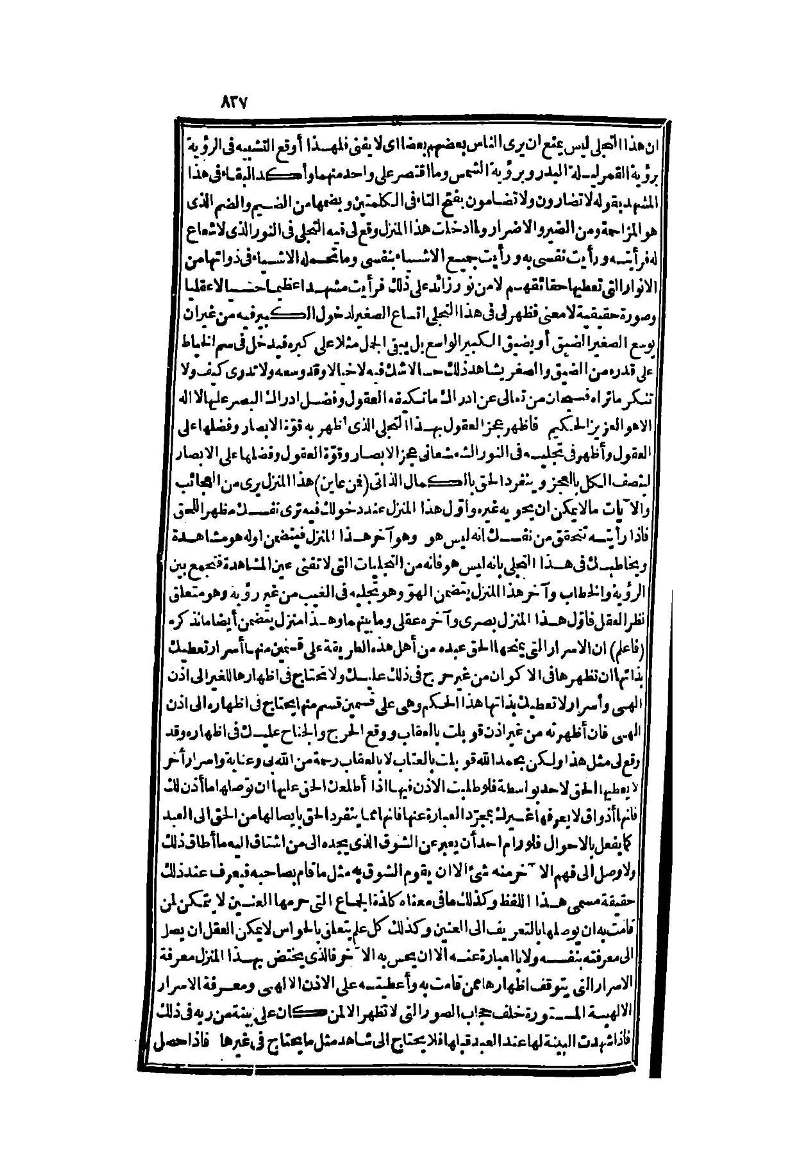 ٨٢٧
ان هذا التجلى ليس يمنع ان يرى الناس بعضهم بعضا اى لا يفنى فلهذا أوقع التشبيه فى الرؤية
برؤية القمر ليلة البدر وبرؤية الشمس وما اقتصر على واحد منهما وأكد البقاء فى هذا
المشهد بقوله لا تضارون ولا تضامون بفتح التاء فى الكلمتين وبضمها من الضيم والضم الذى
هو المزاحمة ومن الضير والاضرار ولما دخلت هذا المنزل وقع لى فيه التجلى فى النور الذى لا شعاع
له فرأيته ورأيت نفسى به ورأيت جميع الاشياء بنفسى وما تحمله الاشياء فى ذواتها من
الانوار التى تعطيها حقائقهم لا من نور زائد على ذلك فرأيت مشهدا عظيما حسيا لا عقليا
وصورة حقيقية لا معنى فظهر لى فى هذا التجلى اتساع الصغير لدخول الكبير فيه من غير ان
يوسع الصغير الضيق أو يضيق الكبير الواسع بل يبقى الجمل مثلا على كبره فيدخل فى سم الخياط
على قدره من الضيق والصغر يشاهد ذلك حسا لا شك فيه لا خيالا وقد وسعه ولا تدرى كيف ولا
تنكر ما تراه فسبحان من تعالى عن ادراك ما تكيفه العقول وفضل ادراك البصر عليها لا اله
الا هو العزيز الحكيم فاظهر عجز العقول بهذا التجلى الذى أظهر به قوّة الابصار وفضلها على
العقول وأظهر فى تجليه فى النور الشعشعانى عجز الابصار وقوّة العقول وفضلها على الابصار
ليتصف الكل بالعجز وينفرد الحق بالكمال الذاتى (فمن عاين) هذا المنزل يرى من العجائب
والآيات ما لا يمكن ان يحويه غيره وأول هذا المنزل عند دخولك فيه ترى نفسك مظهرا للحق
فاذا رأيته تتحقق من نفسك انه ليس هو وهو آخر هذا المنزل فيتضمن اوله هو مشاهدة
ويخاطبك فى هذا التجلى بانه ليس هو فانه من التجليات التى لا تفنى عين المشاهدة فتجمع بين
الرؤية والخطاب وآخر هذا المنزل يتضمن الهو وهو تجليه فى الغيب من غير رؤية وهو متعلق
نظر العقل فاوّل هذا المنزل بصرى وآخره عقلى وما بينهما وهذا منزل يتضمن أيضا ما نذكره
(فاعلم) ان الاسرار التى يمنحها الحق عبده من أهل هذه الطريقة على قسمين منها أسرار تعطيك
بذاتها ان تظهرها فى الاكوان من غير حرج فى ذلك عليك ولا تحتاج فى اظهارها للغير الى اذن
الهى وأسرار لا تعطيك بذاتها هذا الحكم وهى على قسمين قسم منها يحتاج فى اظهاره الى اذن
الهى فان أظهرته من غير اذن قوبلت بالعقاب ووقع الحرج والجناح عليك فى اظهاره وقد
وقع لى مثل هذا ولكن بحمد الله قوبلت بالعتاب لا بالعقاب رحمة من الله بى وعناية واسرار أخر
لا يعطيها الحق لاحد بواسطة فلو طلبت الاذن فيها اذا أطلعك الحق عليها ان توصلها ما أذن لك
فانها أذواق لا يعرفها غيرك بمجرّد العبارة عنها فانها مما ينفرد الحق بايصالها من الحق الى العبد
كما يفعل بالاحوال فلو رام احد أن يعبر عن الشوق الذى يجده الى من اشتاق اليه ما أطاق ذلك
ولا وصل الى فهم الآخر منه شئ الا ان يقوم الشوق به مثل ما قام بصاحبه فيعرف عند ذلك
حقيقة مسمى هذا اللفظ وكذلك ما فى معناه كلذة الجماع التى حرمها العنين لا يتمكن لمن
قامت به ان يوصلها بالتعريف الى العنين وكذلك كل علم يتعلق بالحواس لا يمكن العقل ان يصل
الى معرفته بنفسه ولا بالعبارة عنه الا ان يحس به الآخر فالذى يختص بهذا المنزل معرفة
الاسرار التى يتوقف اظهارها ممن قامت به وأعطيته على الاذن الالهى ومعرفة الاسرار
الالهية المستورة خلف حجاب الصور التى لا تظهر الا لمن كان على بينة من ربه فى ذلك
فاذا شهدت البينة لها عند العبد قبلها فلا يحتاج الى شاهد مثل ما يحتاج فى غيرها فاذا حصل